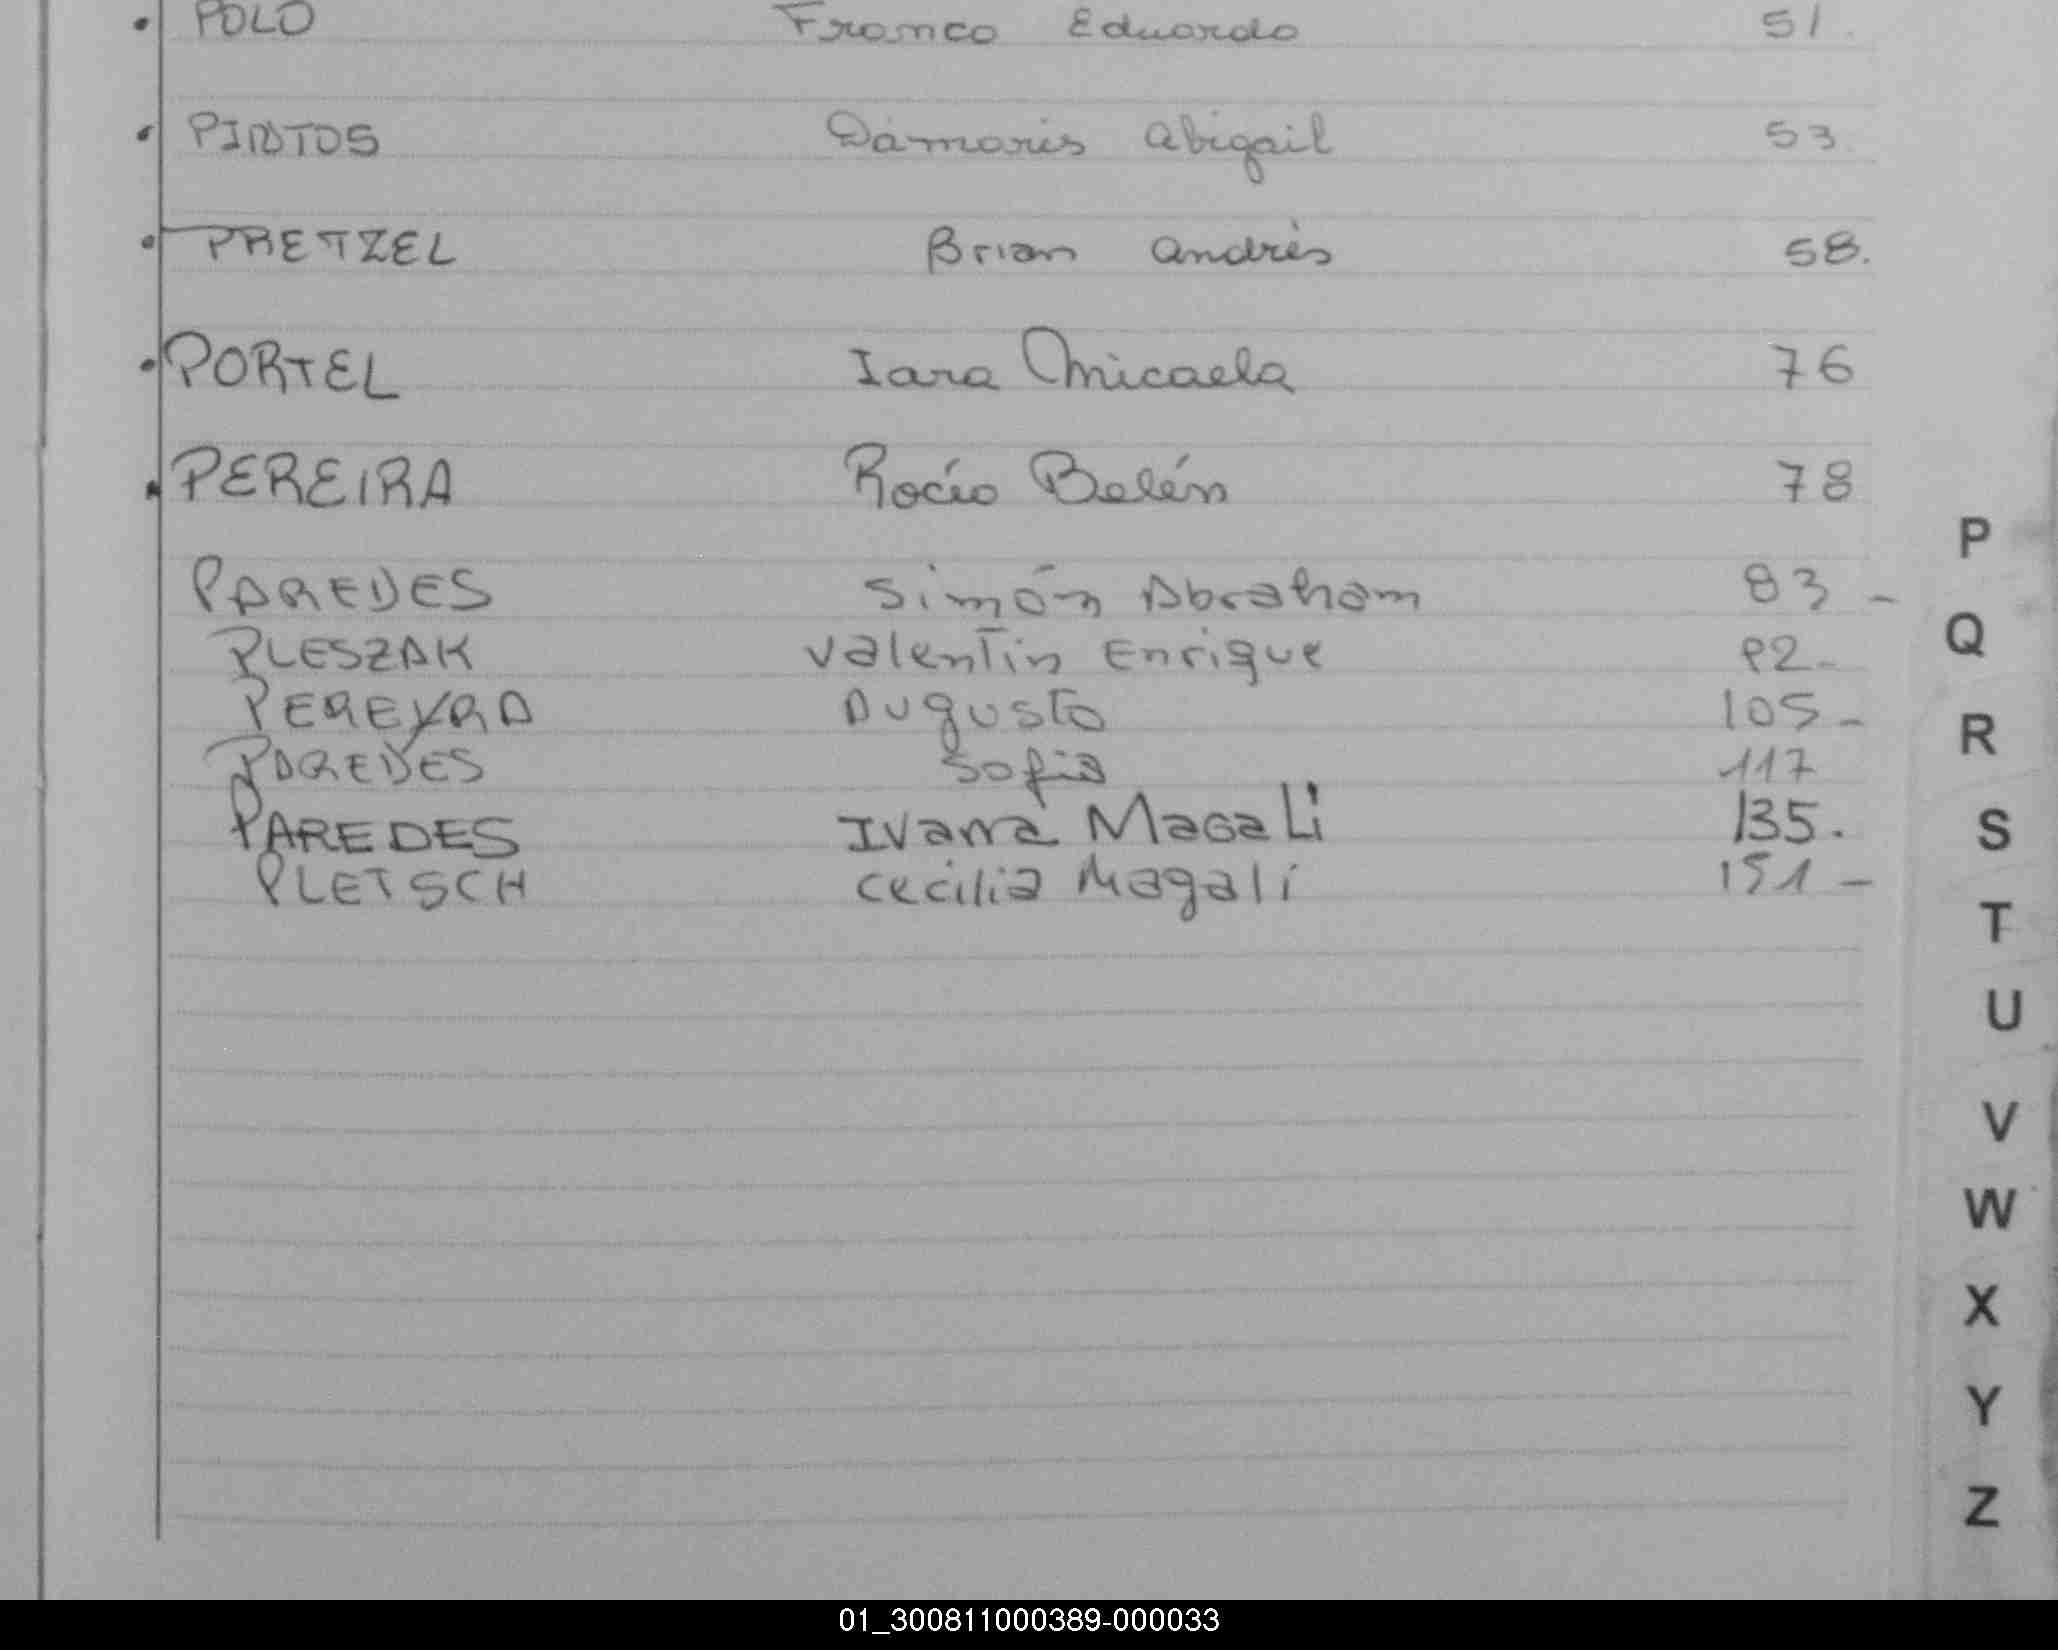 • POLO Franco Eduardo 51.
• PINTOS Dámaris Abigail 53
• PRETZEL Brian Andrés 58.
• PORTEL Iara Micaela 76
• PEREIRA Rocío Belén 78
PAREDES Simón Abraham 83 -
PLESZAK Valentín Enrique 92-
PEREYRA Augusto 105-
PAREDES Sofia 117
PAREDES Ivana Magali 135.
PLETSCH Cecilia Magalí 151-
P
Q
R
S
T
U
V
W
X
Y
Z
01_300811000389-000033